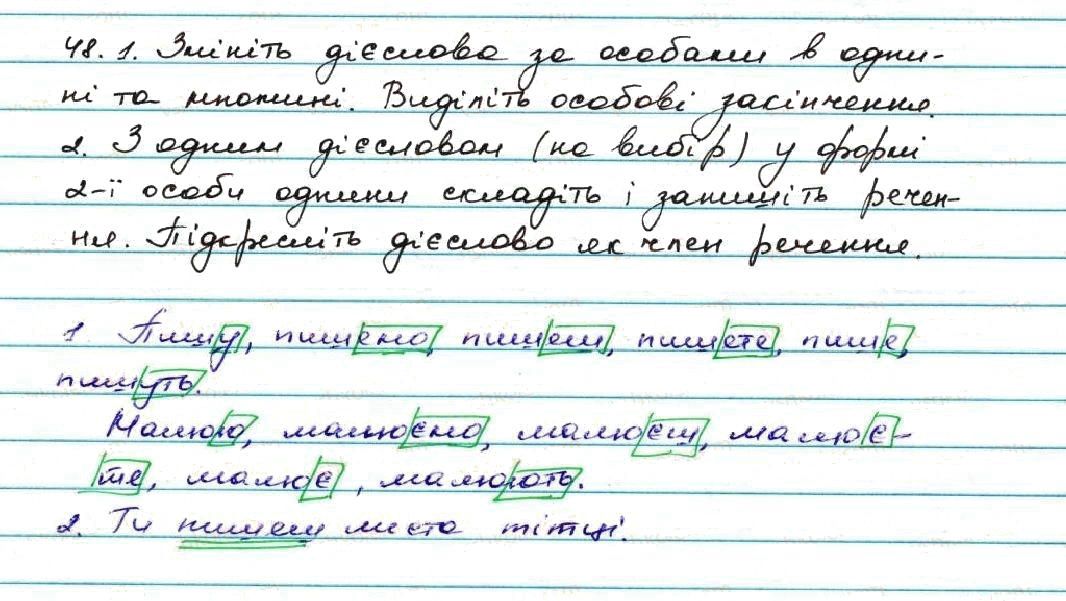 48. 1. Змініть дієслова за особами в одни-
ні та множині. Виділіть особові закінчення.
2. З одним дієсловом (на вибір) у формі
2-ї особи однини складіть і запишіть речен-
ня. Підкресліть дієслово як член речення.
1 Пишу, пишемо, пишеш, пишете, пише,
пишуть.
Малюю, малюємо, малюєш, малює-
те, малює, малюють.
2. Ти пишеш листа тітці.